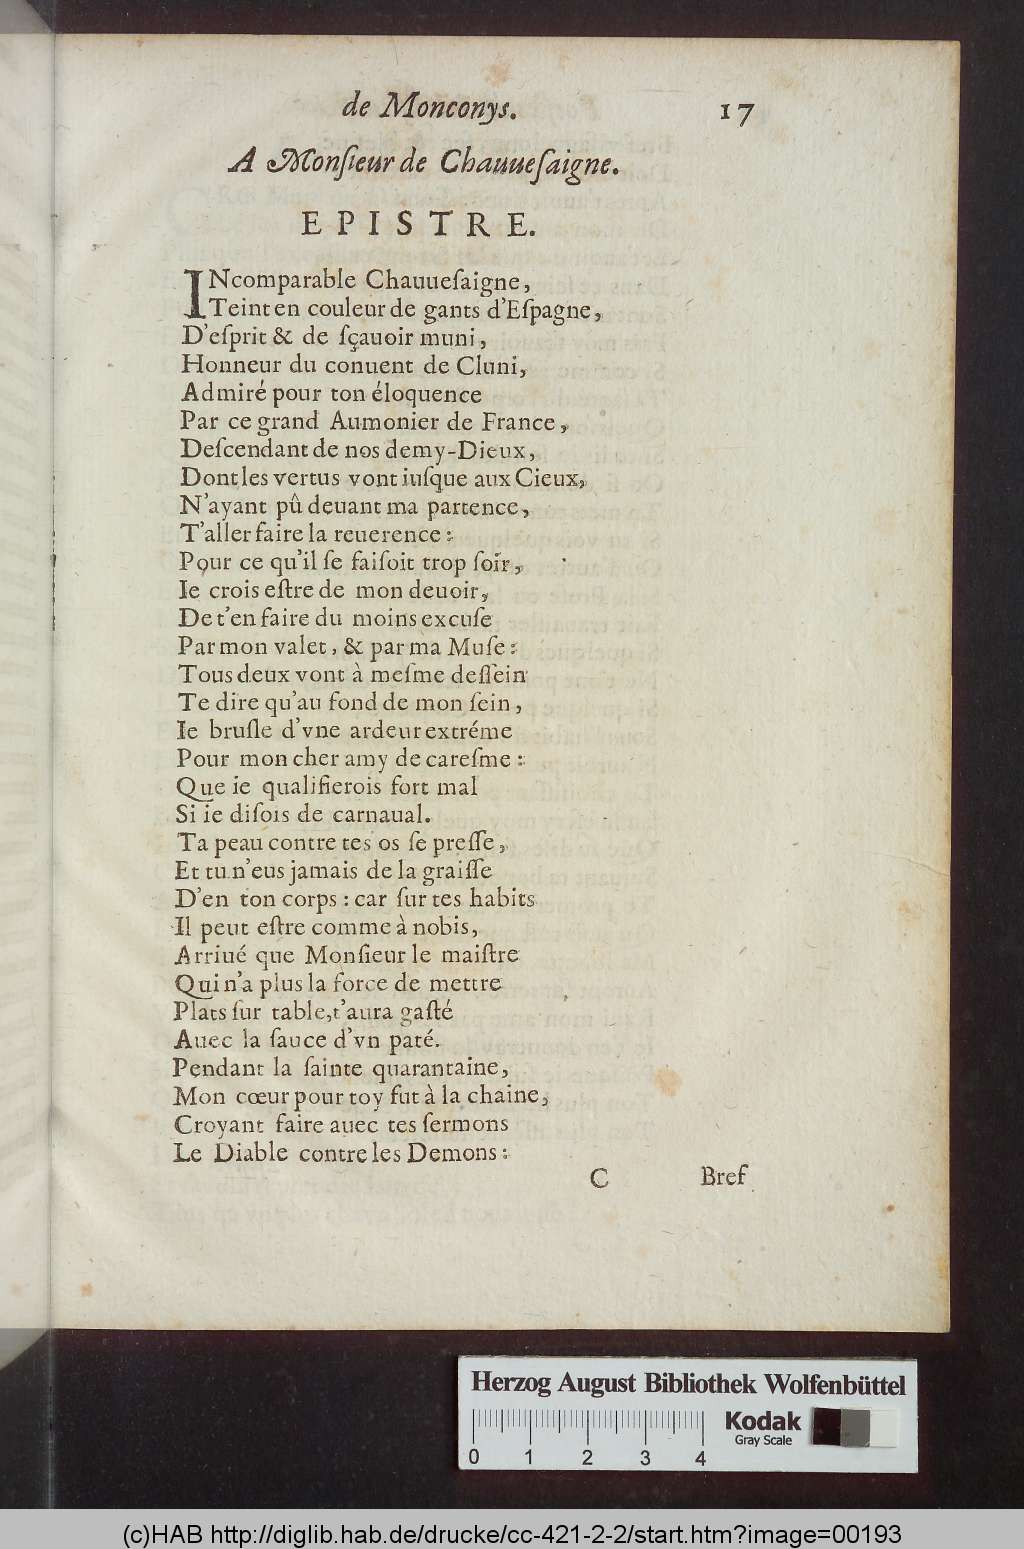 de Monconys. 17
A Monſieur de Chauueſaigne.
EPISTRE.
INcomparable Chauueſaigne,
Teint en couleur de gants d'Eſpagne,
D'eſprit & de ſçauoir muni,
Honneur du conuent de Cluni,
Admiré pour ton éloquence
Par ce grand Aumonier de France,
Deſcendant de nos demy-Dieux,
Dont les vertus vont iuſque aux Cieux,
N'ayant pû deuant ma partence,
T'aller faire la reuerence:
Pour ce qu'il ſe faiſoit trop ſoir,
Ie crois eſtre de mon deuoir,
De t'en faire du moins excuſe
Par mon valet, & par ma Muſe:
Tous deux vont à meſme deſſein
Te dire qu'au fond de mon ſein,
Ie bruſle d'vne ardeur extréme
Pour mon cher amy de careſme:
Que ie qualifierois fort mal
Si ie diſois de carnaual.
Ta peau contre tes os ſe preſſe,
Et tu n'eus jamais de la graiſſe
D'en ton corps: car ſur tes habits
Il peut eſtre comme à nobis,
Arriué que Monſieur le maiſtre
Qui n'a plus la force de mettre
Plats ſur table, t'aura gaſté
Auec la ſauce d'vn paté.
Pendant la ſainte quarantaine,
Mon cœur pour toy fut à la chaine,
Croyant faire auec tes ſermons
Le Diable contre les Demons:
C Bref
Herzog August Bibliothek Wolfenbüttel
Kodak
Gray Scale
0 1 2 3 4
(c)HAB http://diglib.hab.de/drucke/cc-421-2-2/start.htm?image=00193